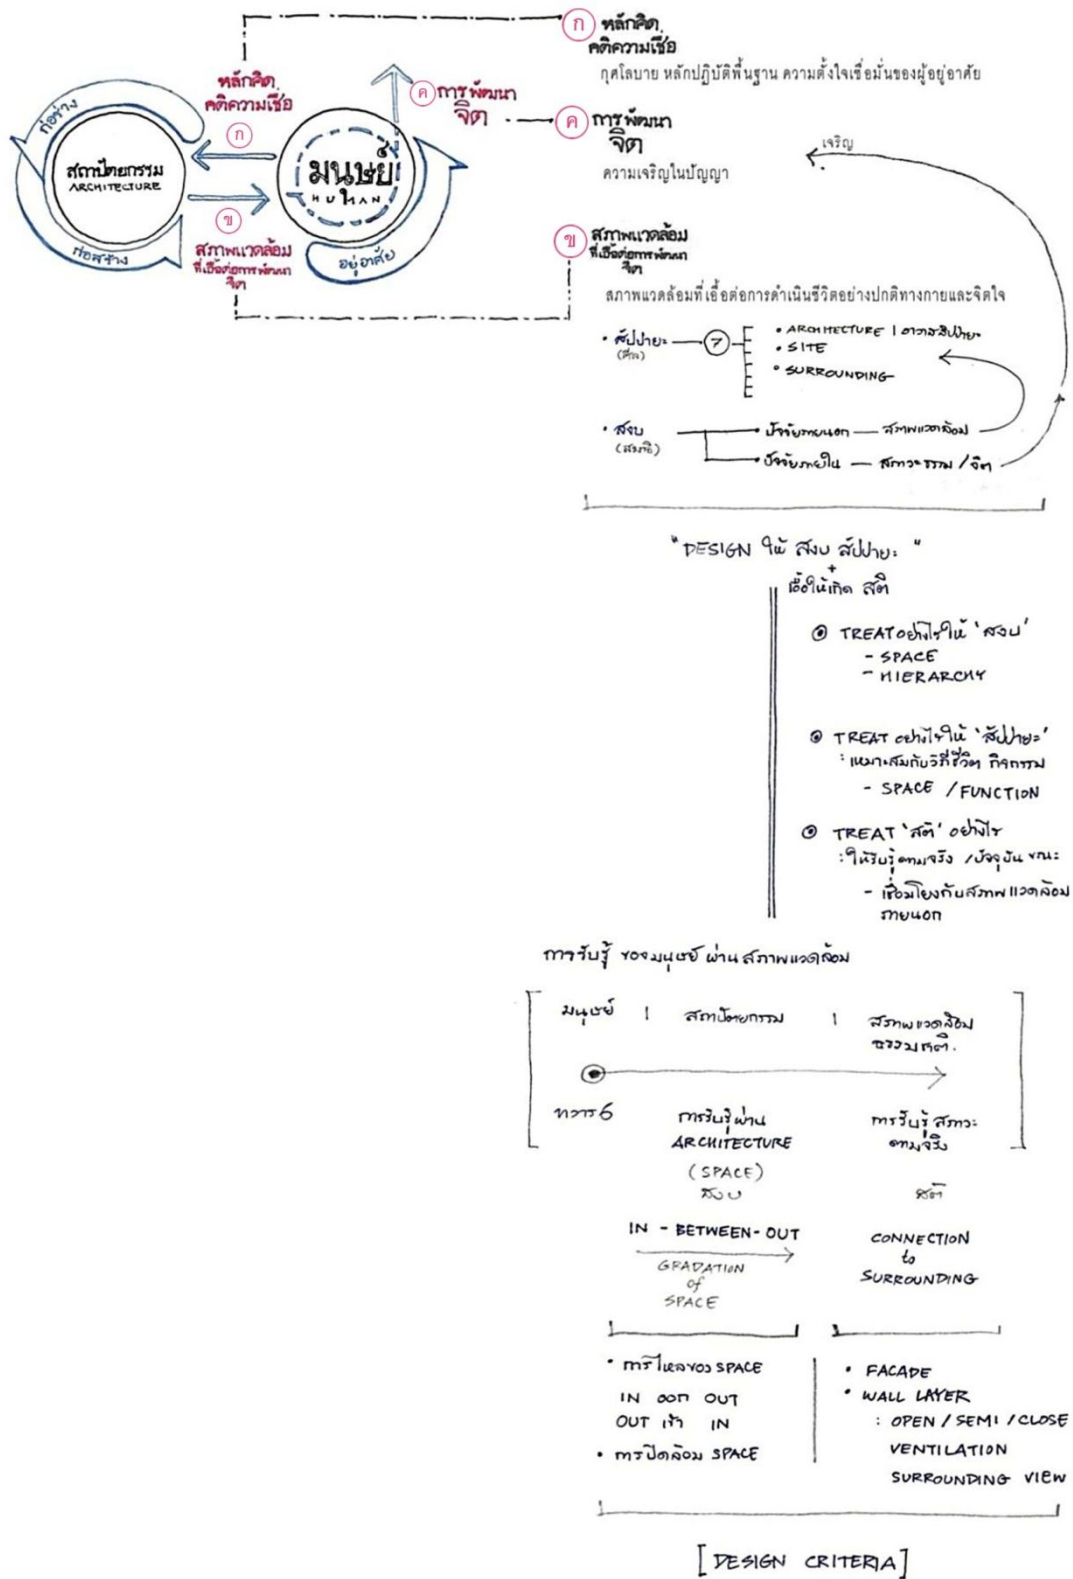 ก หลักคิด
คติความเชื่อ
กุศโลบาย หลักปฏิบัติพื้นฐาน ความตั้งใจเชื่อมั่นของผู้อยู่อาศัย
หลักคิด
คติความเชื่อ
ก
ค การพัฒนา
จิต
ค การพัฒนา
จิต
ความเจริญในปัญญา
เจริญ
ก่อร่าง
สถาปัตยกรรม
ARCHITECTURE
ก่อสร้าง
มนุษย์
HUMAN
อยู่อาศัย
ข
สภาพแวดล้อม
ที่เอื้อต่อการพัฒนา
จิต
ข สภาพแวดล้อม
ที่เอื้อต่อการพัฒนา
จิต
สภาพแวดล้อมที่เอื้อต่อการดำเนินชีวิตอย่างปกติทางกายและจิตใจ
• สัปปายะ 7
(ศีล)
• ARCHITECTURE | อาวาสสัปปายะ
• SITE
• SURROUNDING
• สงบ
(สมาธิ)
• ปัจจัยภายนอก — สภาพแวดล้อม
• ปัจจัยภายใน — สภาวะธรรม / จิต
"DESIGN ให้ สงบ สัปปายะ"
+
เอื้อให้เกิด สติ
TREAT อย่างไรให้ 'สงบ'
- SPACE
- HIERARCHY
TREAT อย่างไรให้ 'สัปปายะ'
: เหมาะสมกับวิถีชีวิต กิจกรรม
- SPACE / FUNCTION
TREAT 'สติ' อย่างไร
: ให้รับรู้ตามจริง / ปัจจุบันขณะ
- เชื่อมโยงกับสภาพแวดล้อม
ภายนอก
การรับรู้ ของมนุษย์ ผ่าน สภาพแวดล้อม
มนุษย์ | สถาปัตยกรรม | สภาพแวดล้อม
ธรรมชาติ.
ทวาร 6
การรับรู้ผ่าน
ARCHITECTURE
(SPACE)
สงบ
การรับรู้ สภาวะ
ตามจริง
สติ
IN - BETWEEN - OUT
GRADATION
of
SPACE
CONNECTION
to
SURROUNDING
• การไหลของ SPACE
IN ออก OUT
OUT เข้า IN
• การปิดล้อม SPACE
• FACADE
• WALL LAYER
: OPEN / SEMI / CLOSE
VENTILATION
SURROUNDING VIEW
[DESIGN CRITERIA]